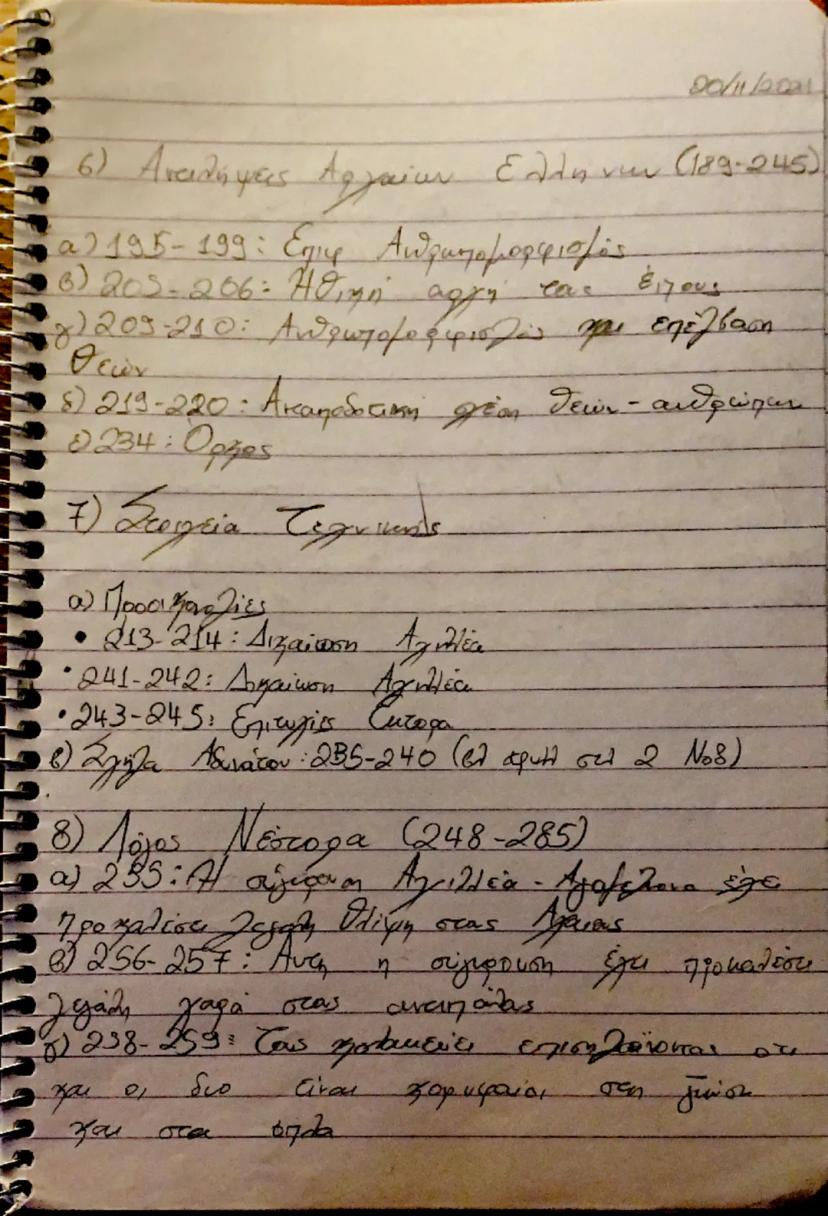 20/11/2021
6) Αντιλήψεις Αρχαίων Ελλήνων (189-245)
α) 195-199: Επιφ Ανθρωπομορφισμός
β) 205-206: Ηθική αρχή του έπους
γ) 209-210: Ανθρωπομορφισμός και επέμβαση
Θεών
δ) 219-220: Ανταποδοτική σχέση θεών-ανθρώπων
ε) 234: Όρκος
7) Στοιχεία Τεχνικής
α) Προοικονομίες
• 213-214: Δικαίωση Αχιλλέα
• 241-242: Δικαίωση Αχιλλέα
• 243-245: Επιτυχίες Έκτορα
β) Σχήμα Αδυνάτου: 235-240 (βλ φυλλ σελ 2 Νο8)
8) Λόγος Νέστορα (248-285)
α) 255: Η σύγκρουση Αχιλλέα - Αγαμέμνονα έχει
προκαλέσει μεγάλη θλίψη στους Αχαιούς
β) 256-257: Αυτή η σύγκρουση έχει προκαλέσει
μεγάλη χαρά στους αντιπάλους
γ) 258-259: Τους κολακεύει επισημαίνοντας οτι
και οι δυο είναι κορυφαίοι στη γνώση
και στα όπλα